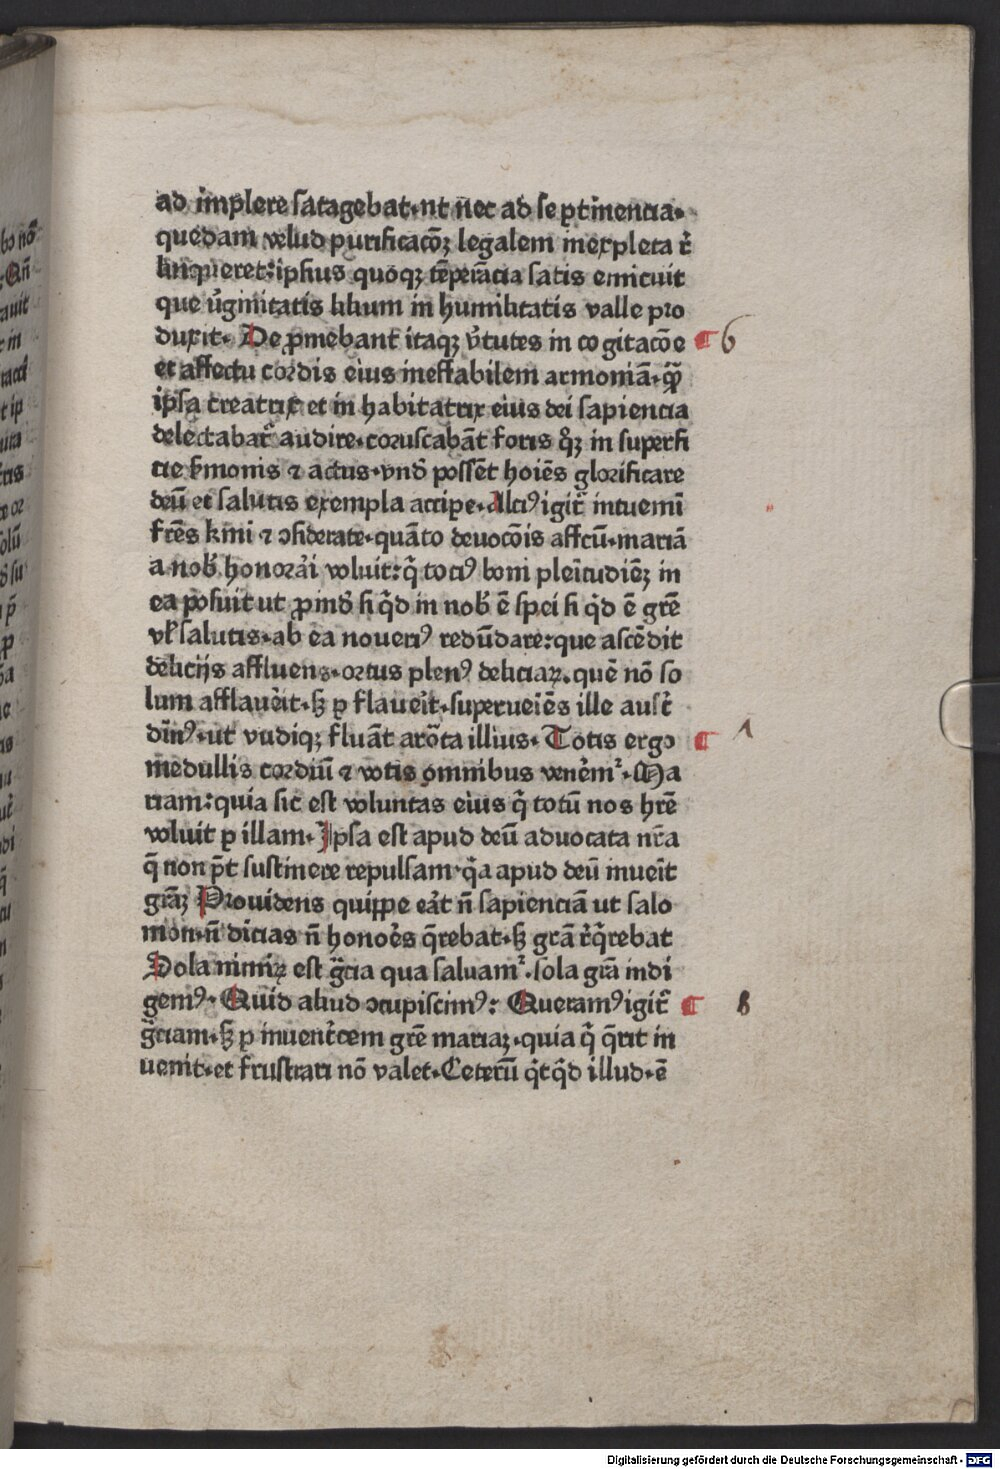 ad implere satagebat·nt nec ad se ꝑtinencia·
quedam velud purificacōꝫ legalem inexpleta r̄
linqueret:ipsius quoqꝫ tēperācia satis emicuit
que v̓ginitatis lilium in humilitatis valle pro
duxit· De ꝓmebant itaqꝫ v̓tutes in cogitacōe ¶ 6
et affectu cordis eius ineffabilem armoniā·qꝫ̄
ipsa creatrix et in habitatrix eius dei sapiencia
delectabat᷑ audire·coruscabāt foris qꝫ in superfi
cie s̓monis ⁊ actus·vnd̓ possēt hoīēs glorificare
deū et salutis exempla accipe·Alciꝰ igit᷑ intuemī
frēs k̄mi ⁊ ↄsiderate·quāto deuocōīs affcū·mariā
a nob̓ honorāi voluit:q̄ tociꝰ boni plenitudīēꝫ in
ea posuit ut ꝓind̓ si q̄d in nob̓ ē spei si q̓d ē grē
vl̓ salutis·ab ea noueriꝰ redūdare:que ascēdit
delicijs affluens·ortus plenꝰ deliciaꝝ·quē nō so
lum afflauēīt·sꝫ ꝑ flauēīt·superueīēs ille aust᷑
dīnꝰ·ut vndiqꝫ fluāt arōta illius· Totis ergo ¶ 7
medullis cordiū ⁊ votis omnibus venēm᷑·Ma
riam:quia sic est voluntas eius q̄ totū nos hrē
voluit ꝑ illam· Ipsa est apud deū aduocata nr̄a
q̄ non p̄t sustinere repulsam·q̄a apud deū inuēīt
grāꝫ Prouidens quippe eāt n̄ sapienciā ut salo
mon·n̄ dicias n̄ honoēs q̄rebat·sꝫ grā r̄q̄rebat
Sola nimiꝝ est gr̄cia qua saluam᷑·sola grā indi
gemꝰ· Quid aliud ↄcupiscimꝰ: Queramꝰ igit᷑ ¶ 8
gr̄ciam·sꝫ ꝑ inuent᷑cem grē mariaꝫ·quia q̄ q̄rit in
uenit·et frustrari nō valet·Ceterū q̓cq̓d illud·ē
Digitalisierung gefördert durch die Deutsche Forschungsgemeinschaft - DFG